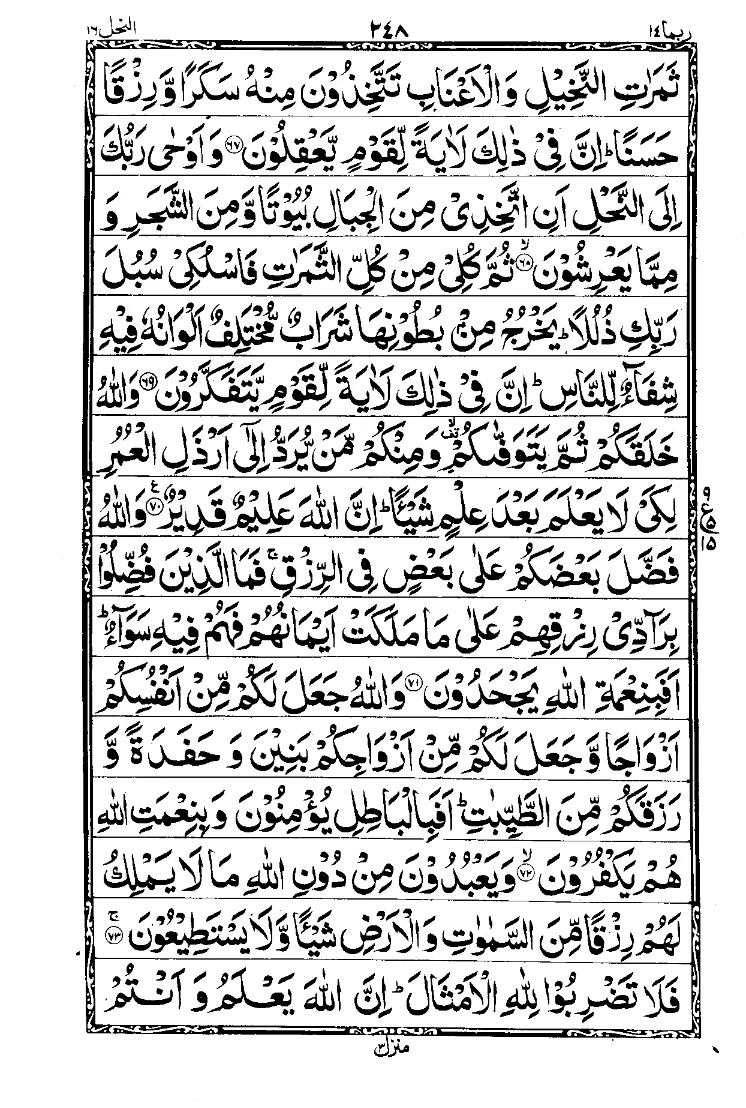 ربما ١٤ ٢٤٨ النحل ١٦
ثَمَرٰتِ النَّخِيْلِ وَالْاَعْنَابِ تَتَّخِذُوْنَ مِنْهُ سَكَرًا وَّ رِزْقًا
حَسَنًاؕ اِنَّ فِىْ ذٰلِكَ لَاٰيَةً لِّقَوْمٍ يَّعْقِلُوْنَ ۝٦٧ وَ اَوْحٰى رَبُّكَ
اِلَى النَّحْلِ اَنِ اتَّخِذِىْ مِنَ الْجِبَالِ بُيُوْتًا وَّ مِنَ الشَّجَرِ وَ
مِمَّا يَعْرِشُوْنَ ۝٦٨ۙ ثُمَّ كُلِىْ مِنْ كُلِّ الثَّمَرٰتِ فَاسْلُكِىْ سُبُلَ
رَبِّكِ ذُلُلًاؕ يَخْرُجُ مِنْۢ بُطُوْنِهَا شَرَابٌ مُّخْتَلِفٌ اَلْوَانُهٗ فِيْهِ
شِفَآءٌ لِّلنَّاسِؕ اِنَّ فِىْ ذٰلِكَ لَاٰيَةً لِّقَوْمٍ يَّتَفَكَّرُوْنَ ۝٦٩ وَاللّٰهُ
خَلَقَكُمْ ثُمَّ يَتَوَفّٰىكُمْ قف وَمِنْكُمْ مَّنْ يُّرَدُّ اِلٰٓى اَرْذَلِ الْعُمُرِ
لِكَىْ لَا يَعْلَمَ بَعْدَ عِلْمٍ شَيْـًٔاؕ اِنَّ اللّٰهَ عَلِيْمٌ قَدِيْرٌ ۝٧٠ ع وَاللّٰهُ
٩ ع ٥ ١٥
فَضَّلَ بَعْضَكُمْ عَلٰى بَعْضٍ فِى الرِّزْقِۚ فَمَا الَّذِيْنَ فُضِّلُوْا
بِرَآدِّىْ رِزْقِهِمْ عَلٰى مَا مَلَكَتْ اَيْمَانُهُمْ فَهُمْ فِيْهِ سَوَآءٌؕ
اَفَبِنِعْمَةِ اللّٰهِ يَجْحَدُوْنَ ۝٧١ وَاللّٰهُ جَعَلَ لَكُمْ مِّنْ اَنْفُسِكُمْ
اَزْوَاجًا وَّ جَعَلَ لَكُمْ مِّنْ اَزْوَاجِكُمْ بَنِيْنَ وَ حَفَدَةً وَّ
رَزَقَكُمْ مِّنَ الطَّيِّبٰتِؕ اَفَبِالْبَاطِلِ يُؤْمِنُوْنَ وَ بِنِعْمَتِ اللّٰهِ
هُمْ يَكْفُرُوْنَ ۝٧٢ۙ وَ يَعْبُدُوْنَ مِنْ دُوْنِ اللّٰهِ مَا لَا يَمْلِكُ
لَهُمْ رِزْقًا مِّنَ السَّمٰوٰتِ وَالْاَرْضِ شَيْـًٔا وَّلَا يَسْتَطِيْعُوْنَ ۝٧٣ۚ
فَلَا تَضْرِبُوْا لِلّٰهِ الْاَمْثَالَؕ اِنَّ اللّٰهَ يَعْلَمُ وَ اَنْتُمْ
منزل ٣